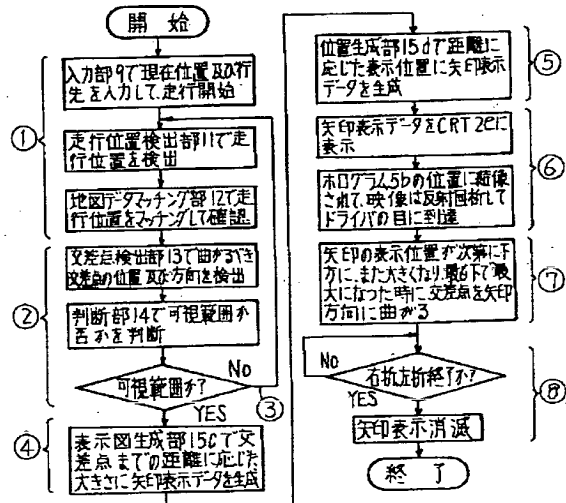 開始
①
入力部9で現在位置及び行
先を入力して、走行開始
走行位置検出部11で走
行位置を検出
地図データマッチング部12で走
行位置をマッチングして確認
②
交差点検出部13で曲がるべき
交差点の位置及び方向を検出
判断部14で可視範囲か
否かを判断
可視範囲か?
NO
③
YES
④
表示図生成部15cで交
差点までの距離に応じた
大きさに矢印表示データを生成
位置生成部15dで距離に
応じた表示位置に矢印表示
データを生成
⑤
矢印表示データをCRT2eに
表示
⑥
ホログラム5bの位置に結像
されて、映像は反射回折して
ドライバの目に到達
矢印の表示位置が次第に下
方に、また大きくなり、最も下で最
大になった時に交差点を矢印
方向に曲がる
⑦
NO
右折左折終了か?
YES
⑧
矢印表示消滅
終了